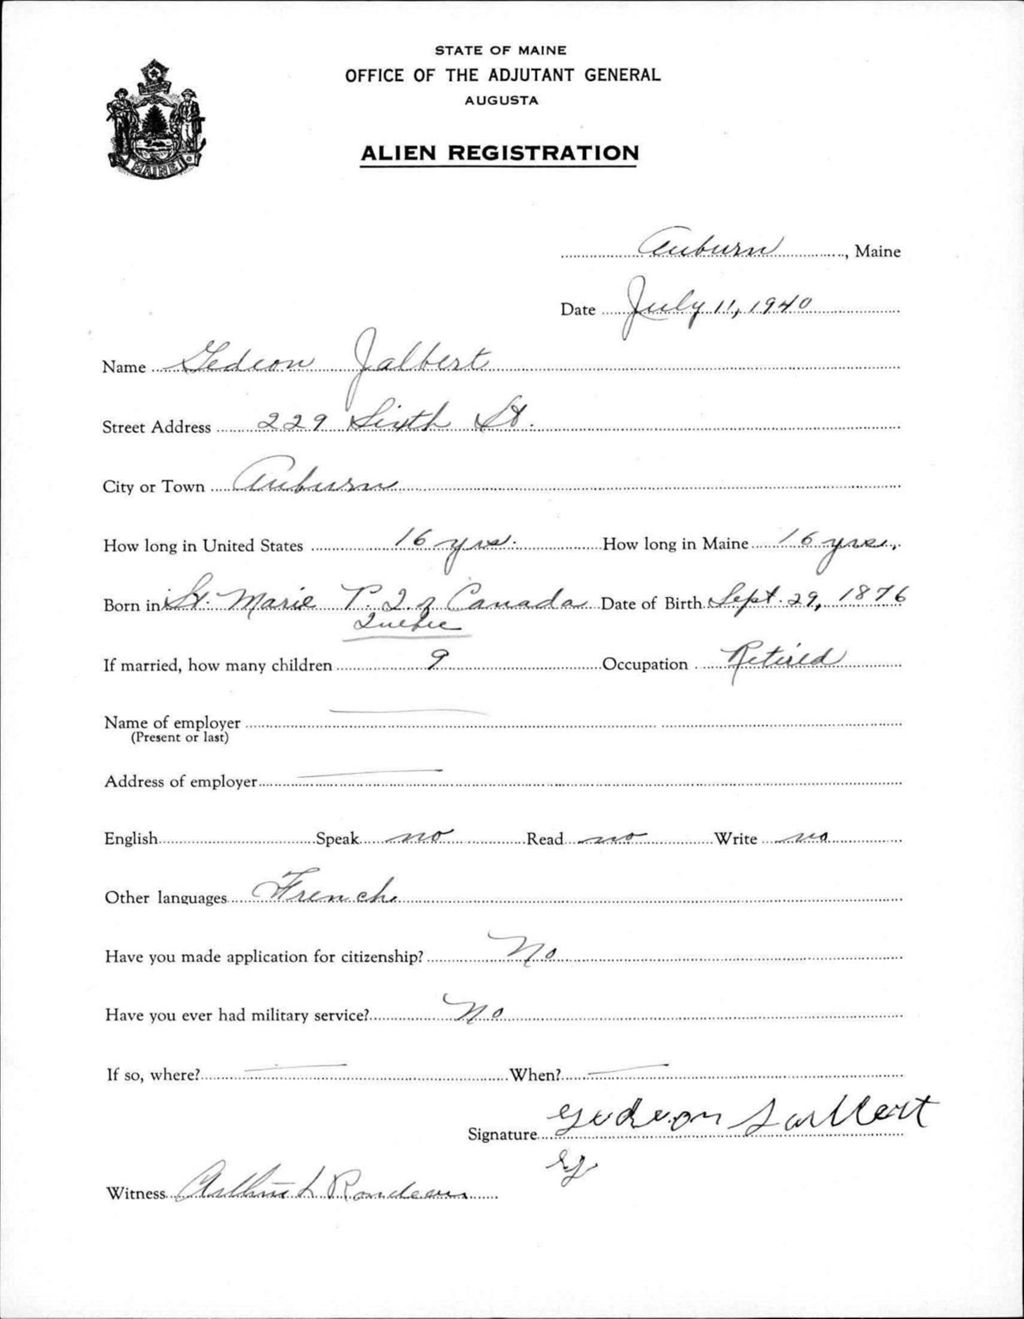 STATE OF MAINE
OFFICE OF THE ADJUTANT GENERAL
AUGUSTA
ALIEN REGISTRATION
MAINE
Auburn, Maine
Date July 11, 1940
Name Gedeon Jalbert
Street Address 229 Sixth St.
City or Town Auburn
How long in United States 16 yrs. How long in Maine 16 yrs.
Born in St. Marie P. Q. Canada Date of Birth Sept. 29, 1876
Quebec
If married, how many children 9 Occupation Retired
Name of employer
(Present or last)
Address of employer
English Speak no Read no Write no
Other languages French
Have you made application for citizenship? No
Have you ever had military service? No
If so, where? When?
Signature Gedeon Jalbert
Witness Arthur L Rondeau